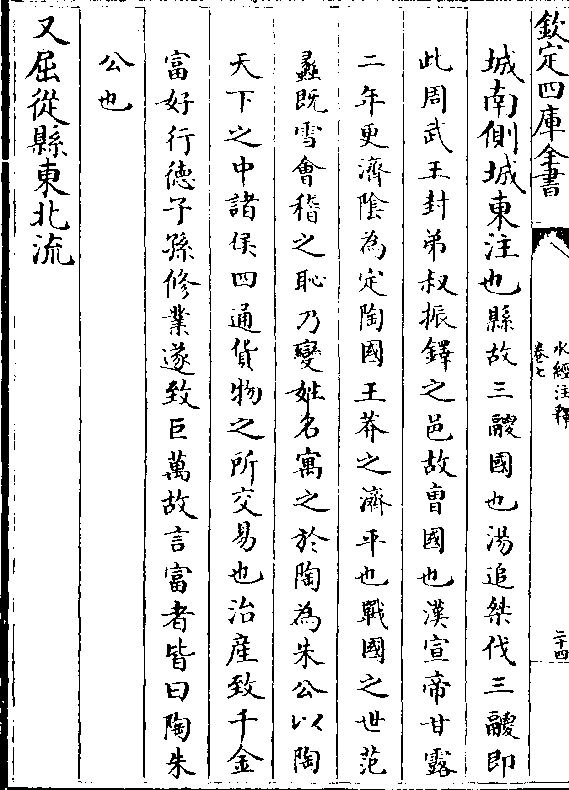 欽定四庫全書
水經注釋
卷七
二十四
城南側城東注也縣故三鬷國也湯追桀伐三鬷即
此周武王封弟叔振鐸之邑故曹國也漢宣帝甘露
二年更濟隂為定陶國王莽之濟平也戰國之世范
蠡既雪會稽之恥乃變姓名寓之於陶為朱公以陶
天下之中諸侯四通貨物之所交易也治産致千金
富好行德子孫修業遂致巨萬故言富者皆曰陶朱
公也
又屈從縣東北流